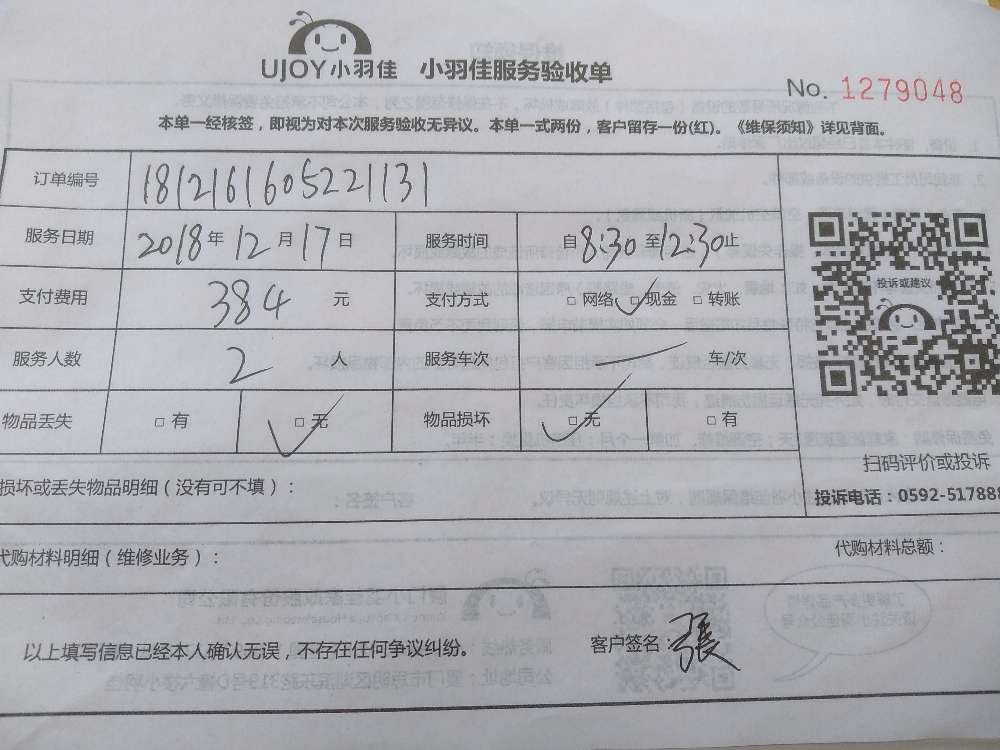 UJOY小羽佳 小羽佳服务验收单
No. 1279048
本单一经核签，即视为对本次服务验收无异议。本单一式两份，客户留存一份(红)。《维保须知》详见背面。
订单编号 1812161605221131
服务日期 2018年12月17日 服务时间 自8:30至12:30止
投诉或建议
支付费用 384 元 支付方式 □网络 ☑现金 □转账
服务人数 2 人 服务车次 — 车/次
物品丢失 □有 ☑无 物品损坏 ☑无 □有
扫码评价或投诉
损坏或丢失物品明细（没有可不填）：
投诉电话：0592-517888
代购材料明细（维修业务）： 代购材料总额：
以上填写信息已经本人确认无误，不存在任何争议纠纷。 客户签名：張